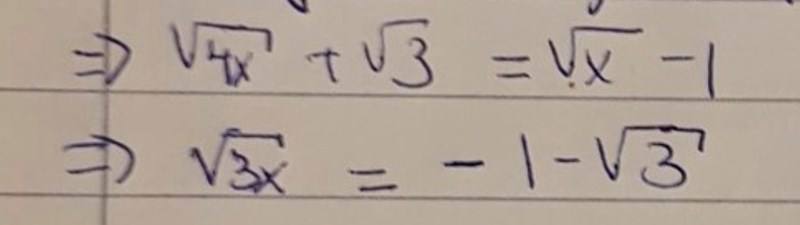 ⇒ √4x + √3 = √x - 1
⇒ √3x = - 1 - √3